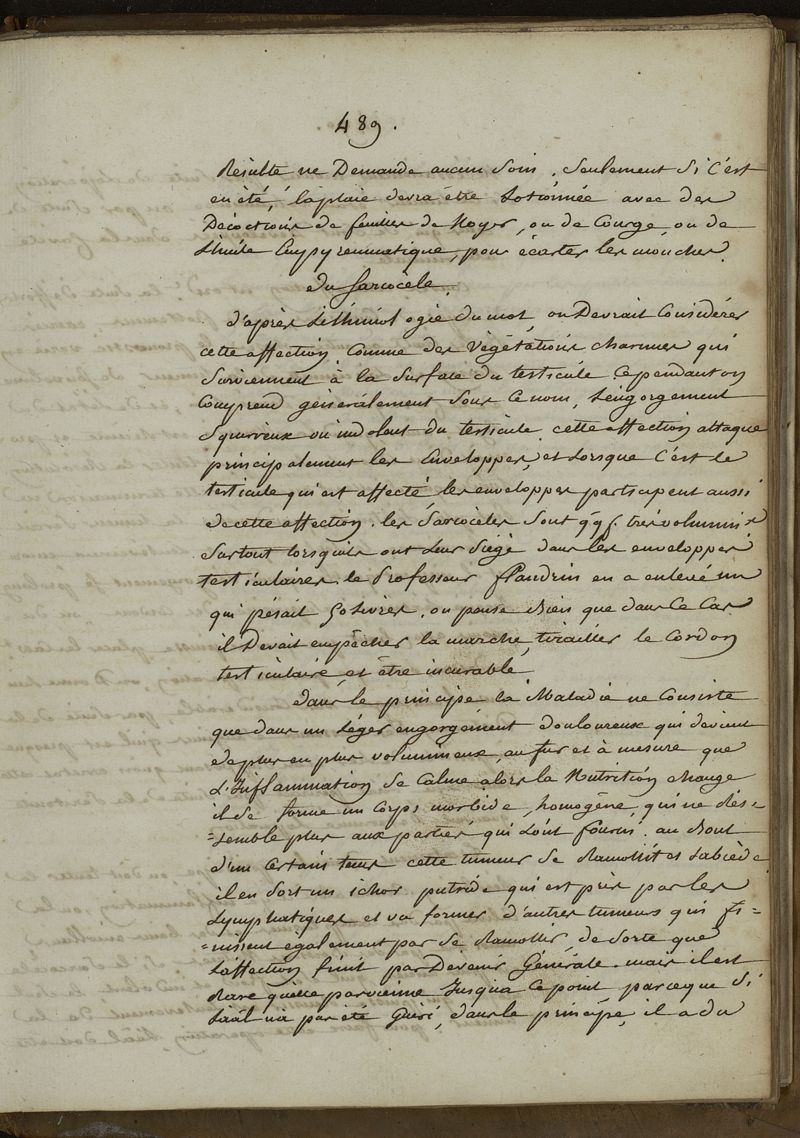 489.
Résulte ne Demande aucun Soin. Seulement Si C'est
en été, la plaie devra être Lotionnée avec des
Décoctions de feuilles de Noyer, ou de Courge, ou de
L'huile Empyreumatique, pour écarter les mouches.
du Sarcocèle.
d'après L'éthimologie du mot, on Devrait Considérer
cette affection Comme des Végétations charnues qui
Surviennent à la Surface du testicule Cependant on
Comprend généralement Sous Ce nom, L'engorgement
Squirreux ou indolent du testicule. cette affection attaque
principalement les Enveloppes, et Lorsque C'est le
testicule qui est affecté les enveloppes participent aussi
de cette affection. les Sarcocèles Sont qqf. très volumin.x
Surtout lorsqu'ils ont Leur Siége dans les enveloppes
testiculaires. le Professeur flandrin en a enlevé un
qui pésait 50 Livres. on pense Bien que dans Ce Cas
il Devait empêcher la marche, tirailler le Cordon
testiculaire et être incurable
dans le principe la Maladie ne Consiste
que dans un Léger engorgement douloureux qui devient
de plus en plus volumineux, au fur et à mesure que
L'Inflammation Se Calme alors la Nutrition change
il Se forme un Corps morbide, homogène, qui ne rés=
=semble plus aux parties qui L'ont fourni. au Bout
d'un Certain tems cette tumeur Se Ramollit et S'abcède
il en Sort un ichor putride qui est pris par les
Lymphatiques et va former d'autres tumeurs qui fi=
=nissent également par Se Ramollir, de Sorte que
L'affection finit par Devenir Générale. mais il est
Rare qu'elle parvienne Jusqu'à Ce point, parceque Si
L'aal n'a pas été Guéri, dans le principe, il a du